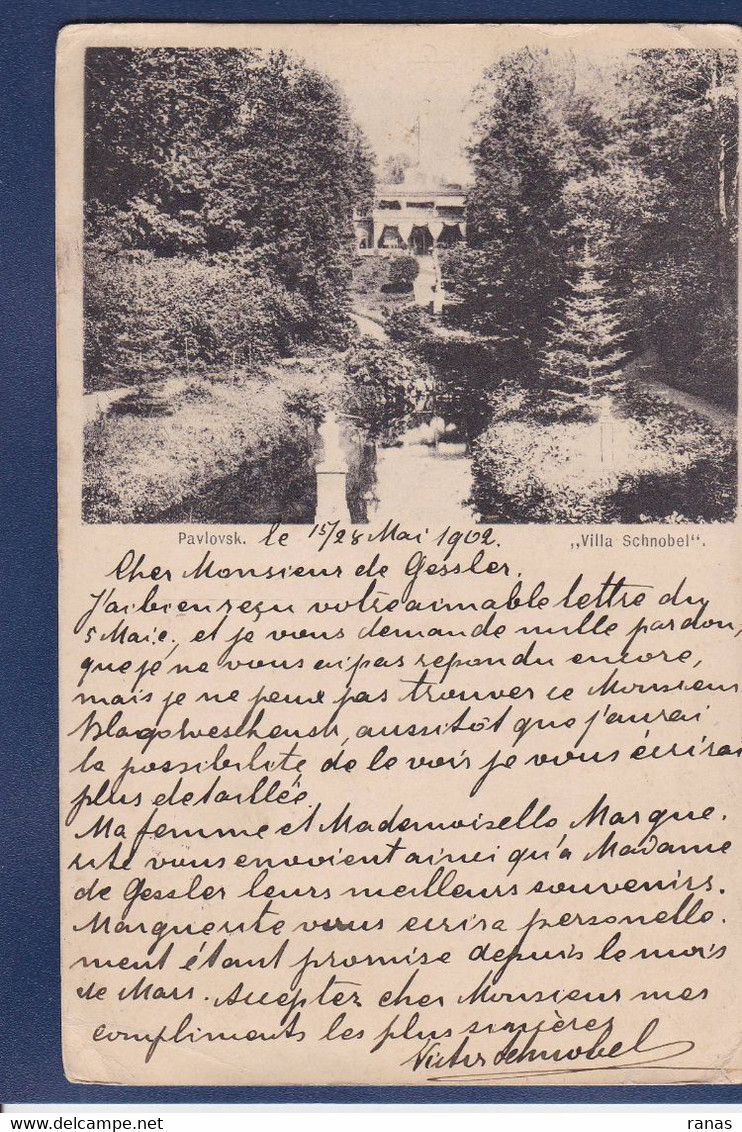 Pavlovsk. le 15/28 Mai 1902. „Villa Schnobel“.
Cher Monsieur de Gessler.
J'ai bien reçu votre aimable lettre du
5 Mai c, et je vous demande mille pardon,
que je ne vous ai pas repondu encore,
mais je ne peux pas trouver ce Monsieur
aussitôt que j'aurai
la possibilité de le voir je vous écrirai
plus detaillée.
Ma femme et Mademoiselle Margue.
rite vous envoient ainsi qu'a Madame
de Gessler leurs meilleurs souvenirs.
Marguerite vous ecrira personelle.
ment étant promise depuis le mois
de Mars. Acceptez cher Monsieur mes
compliments les plus sincères
Victor Schnobel
ranas